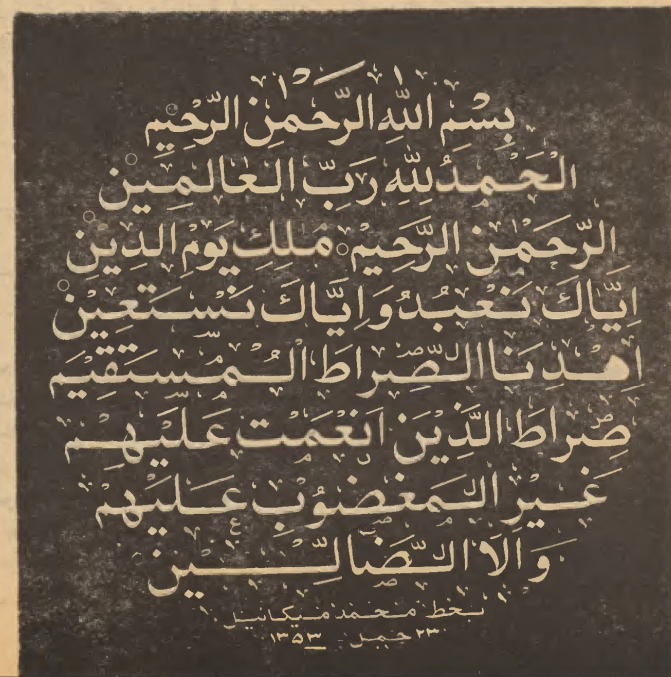 بِسْمِ اللّٰهِ الرَّحْمٰنِ الرَّحِيْمِ
اَلْحَمْدُ لِلّٰهِ رَبِّ الْعَالَمِيْنَ
الرَّحْمٰنِ الرَّحِيْمِ مٰلِكِ يَوْمِ الدِّيْنِ
اِيَّاكَ نَعْبُدُ وَاِيَّاكَ نَسْتَعِيْنُ
اِهْدِنَا الصِّرَاطَ الْمُسْتَقِيْمَ
صِرَاطَ الَّذِيْنَ اَنْعَمْتَ عَلَيْهِمْ
غَيْرِ الْمَغْضُوْبِ عَلَيْهِمْ
وَلَا الضَّالِّيْنَ
بخط محمد میکائیل
۲۳ حمل ۱۳۵۳